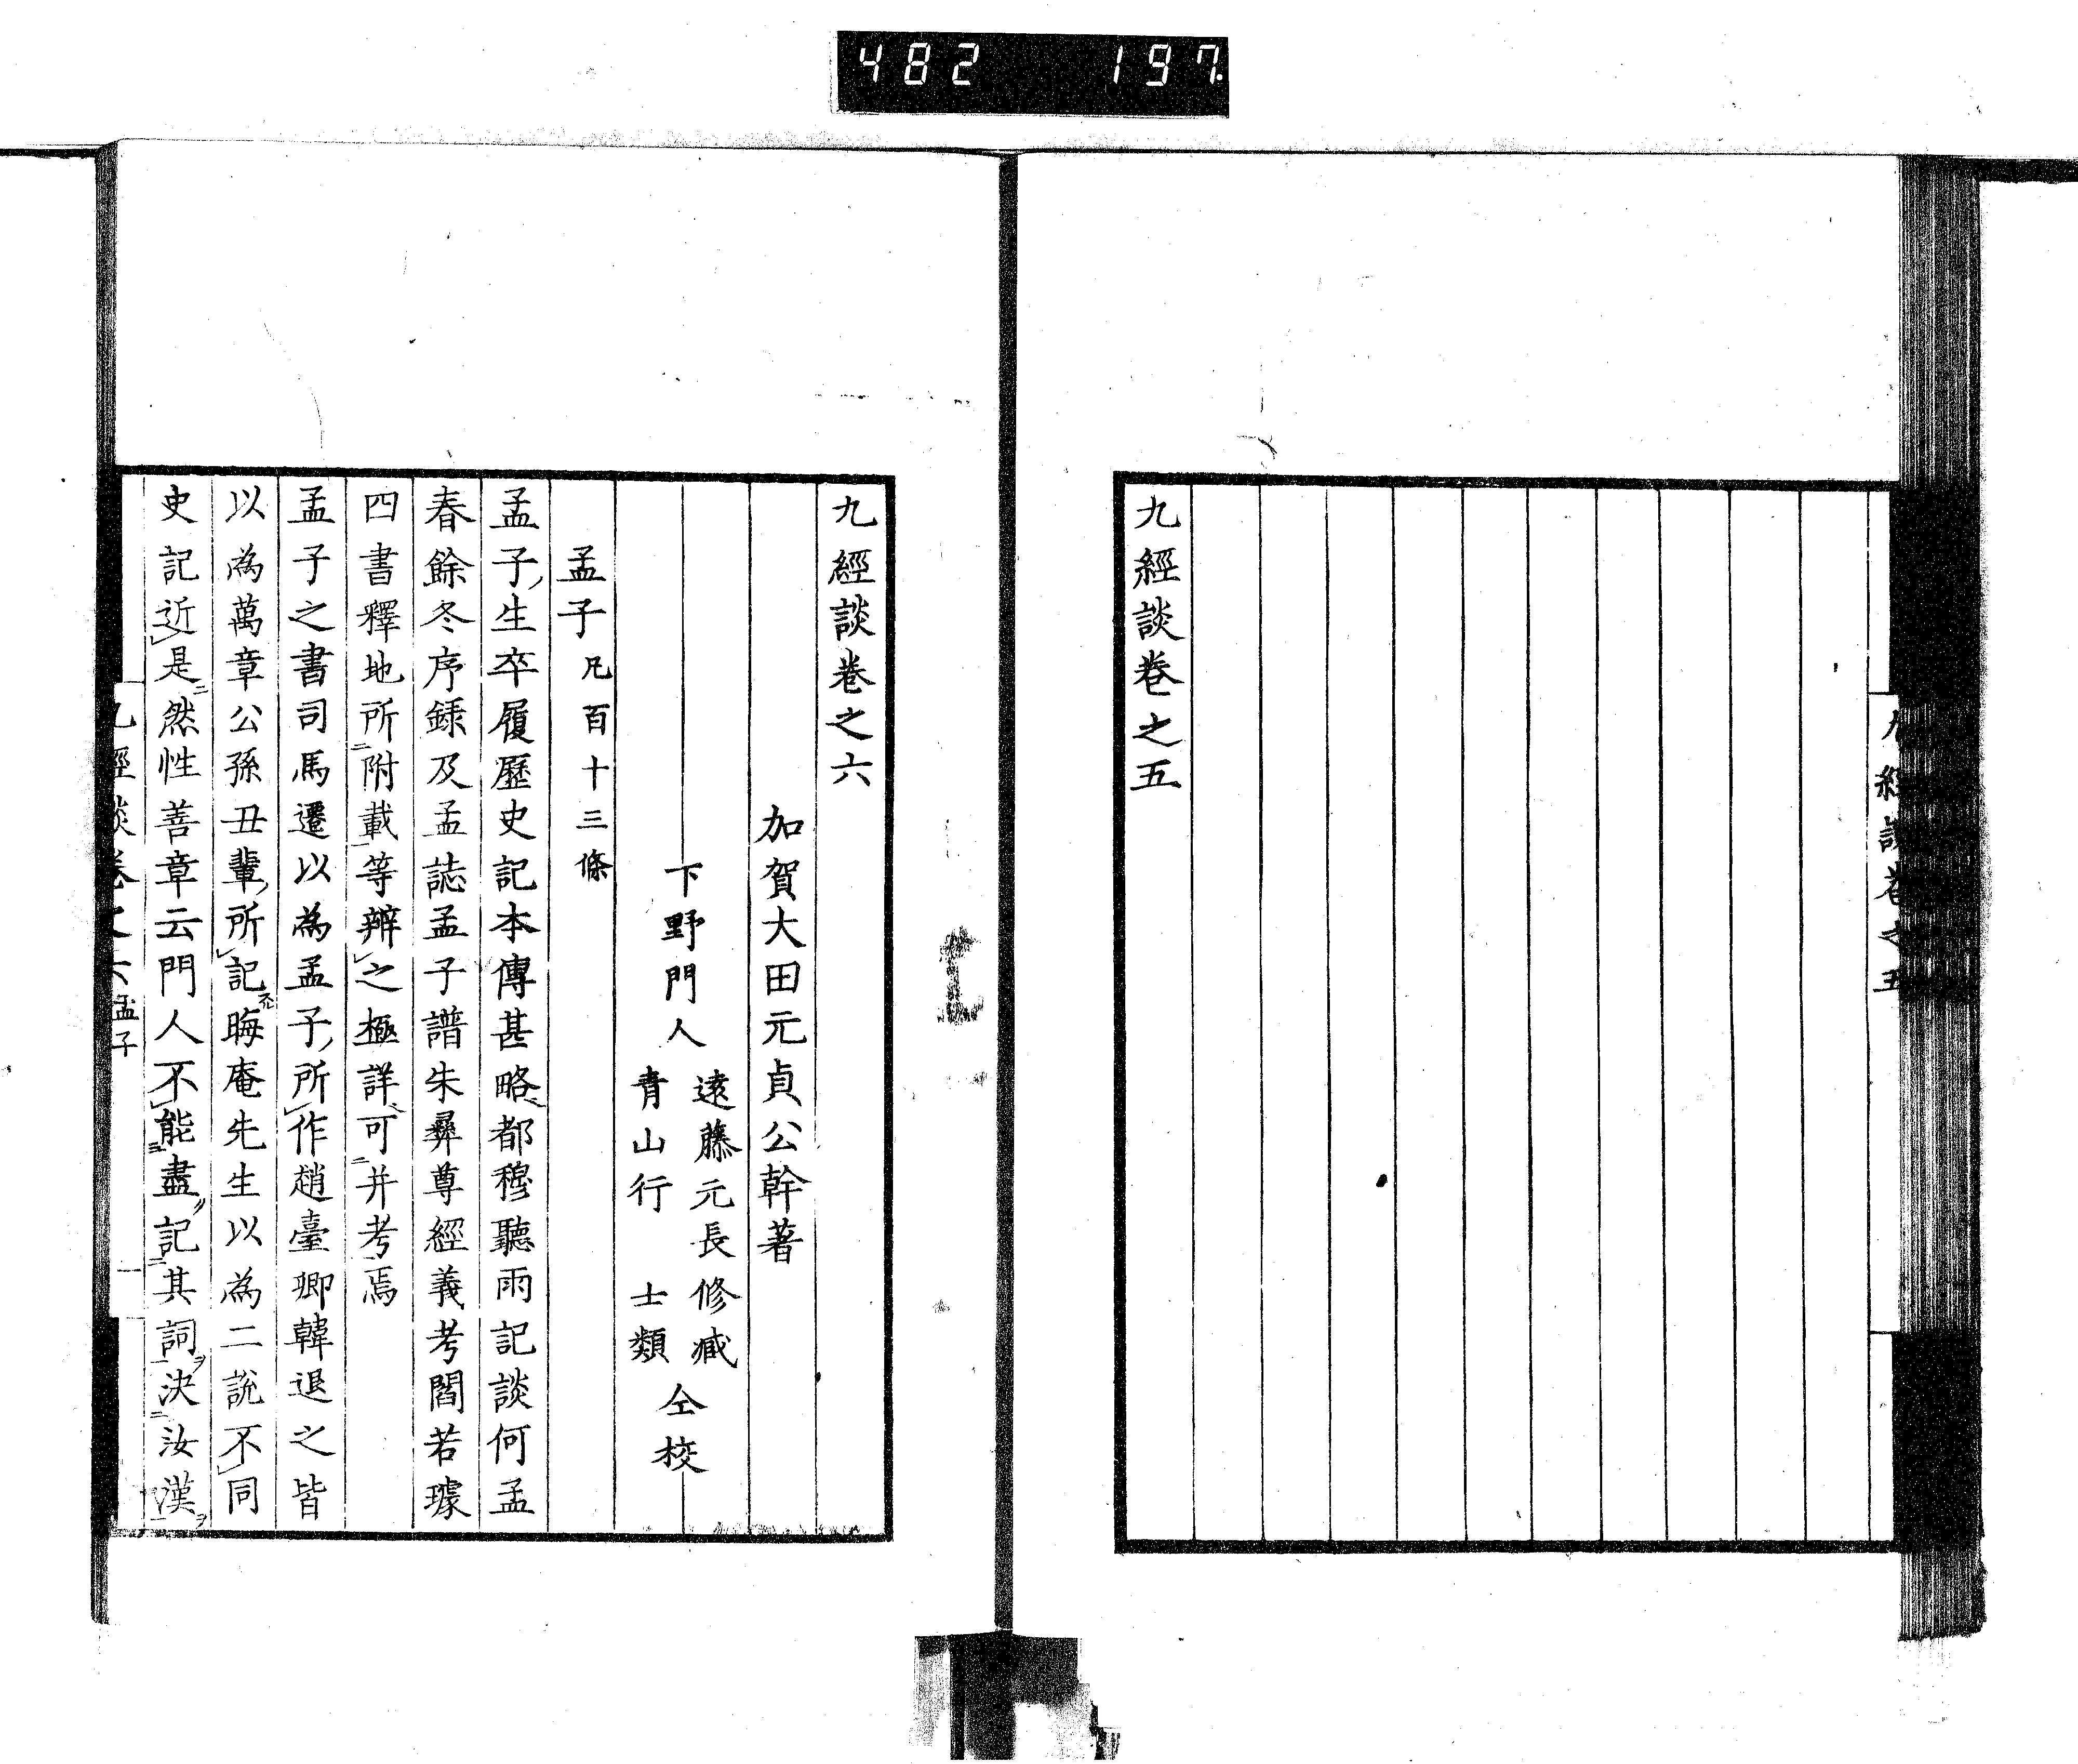 482 197.
九經談卷之五
九經談卷之五
九經談卷之六
加賀大田元貞公幹著
下野門人
遠藤元長修臧
青山行 士類
仝校
孟子凡百十三條
孟子生卒履歷史記本傳甚略都穆聽雨記談何孟
春餘冬序錄及孟誌孟子譜朱彝尊經義考閻若璩
四書釋地所附載等辨之極詳可并考焉
孟子之書司馬遷以為孟子所作趙臺卿韓退之皆
以為萬章公孫丑輩所記晦庵先生以為二說不同
史記近是然性善章云門人不能盡記其詞決汝漢
九經談卷之六孟子 一